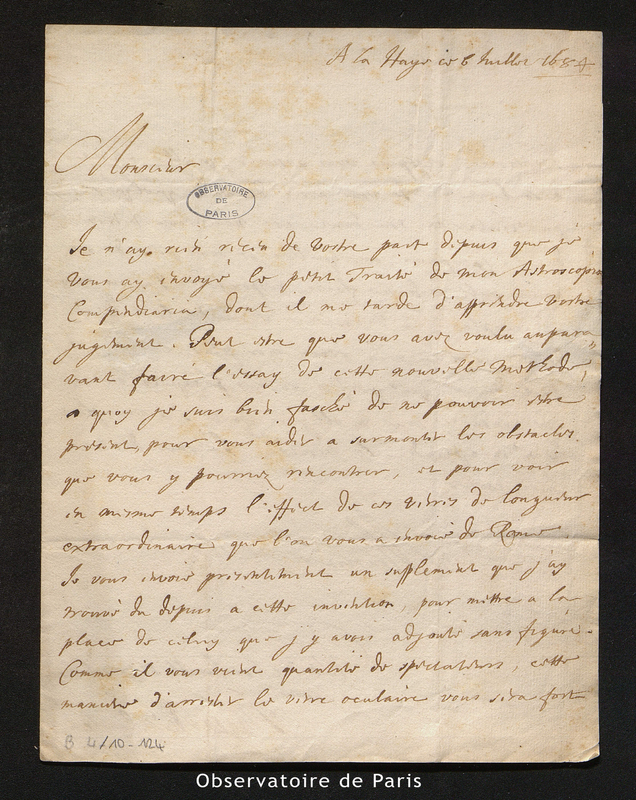 A La Haye ce 6 Juillet 1684
Monsieur
OBSERVATOIRE
DE
PARIS
Je n'ay rien receu de vostre part depuis que je
vous ay envoyè le petit Traitè de mon Astroscopia
Compendiaria, dont il me tarde d'apprendre vostre
jugement. Peut estre que vous avez voulu aupara„
vant faire l'essay de cette nouvelle Methode,
a quoy je suis bien faschè de ne pouvoir estre
present, pour vous aider a surmonter les obstacles
que vous y pourriez rencontrer, et pour voir
en mesme temps l'effect de ces verres de longueur
extraordinaire que l'on vous a envoiè de Rome.
Je vous envoie presentement un supplement que j'ay
trouvè du depuis a cette invention, pour mettre a la
place de celuy que j'y avois adjoutè sans figure.
Comme il vous vient quantitè de spectateurs, cette
maniere d'arrester le verre oculaire vous sera fort
B 4/10-124
Observatoire de Paris